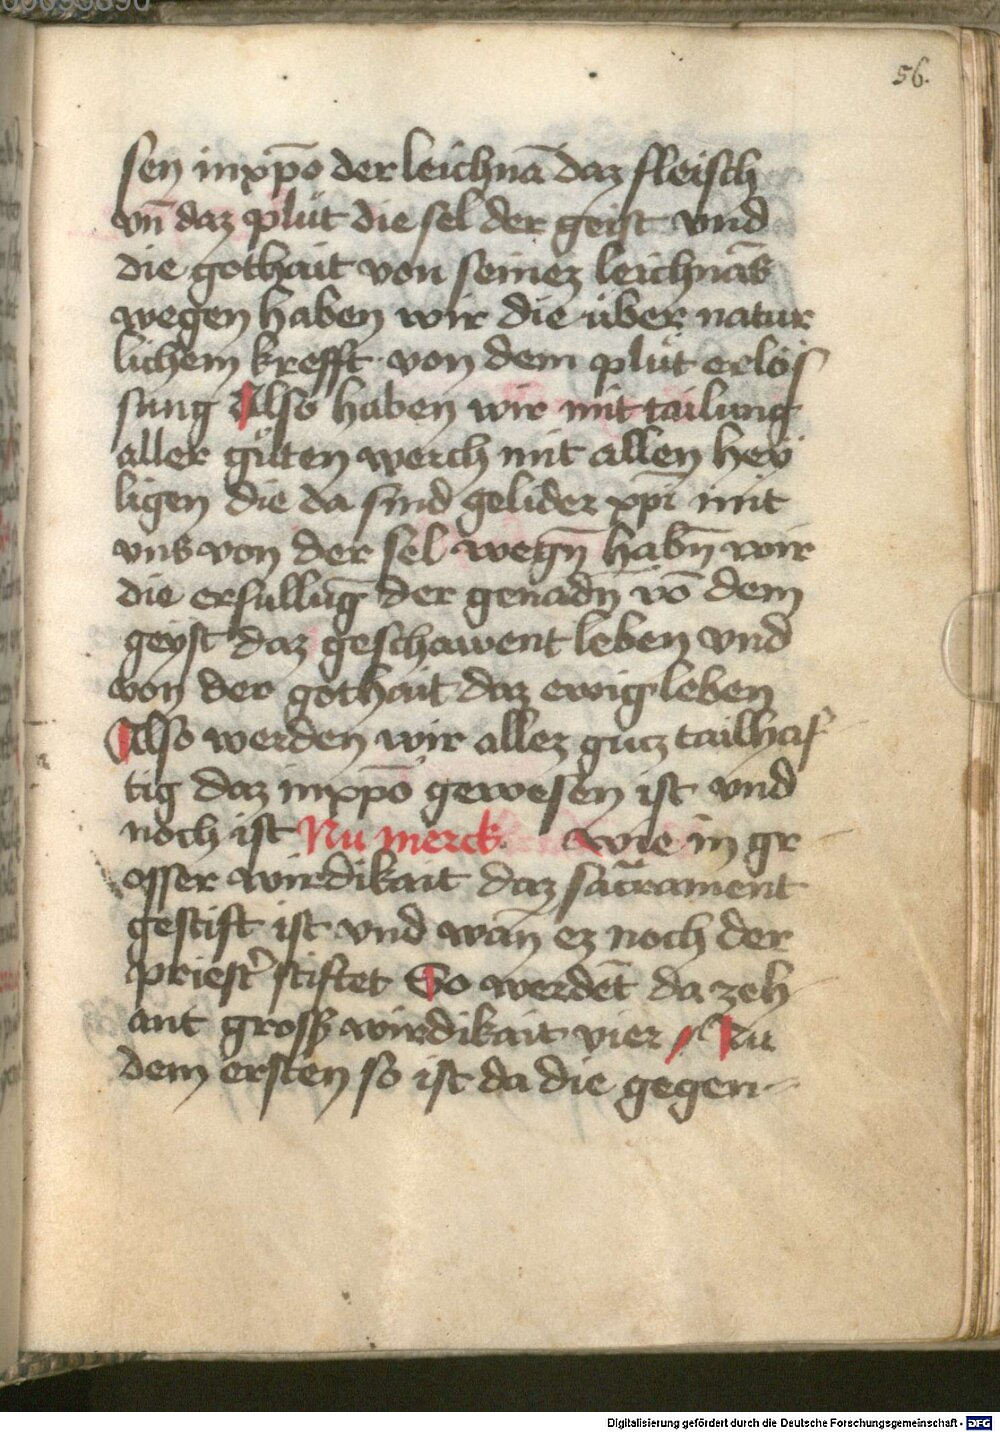 56.
sen in xp̄o der leichnā daz fleisch
vn̄ daz plůt die sel der geist vnd
die gothait von seinez leichnās
wegen haben wir die über natur
lichem krefft von dem plůt erlös
sung Also haben wir mit tailung
aller gůten werch mit allen hey
ligen die da sind gelider xp̄i mit
vns von der sel wegn̄ habn̄ wir
die erfullūg der genadn̄ vō dem
geyst daz geschawent leben vnd
von der gothait daz ewig leben
Also werden wir allez gutz tailhaf
tig daz in xp̄o gewesen ist vnd
noch ist Nu merck wie in gr
osser wirdikait daz sacrament
gestift ist vnd wan̄ ez noch der
priest' stiftet So werdēt da zeh
ant gross wirdikait vier Zu
dem ersten so ist da die gegen-
Digitalisierung gefördert durch die Deutsche Forschungsgemeinschaft - DFG